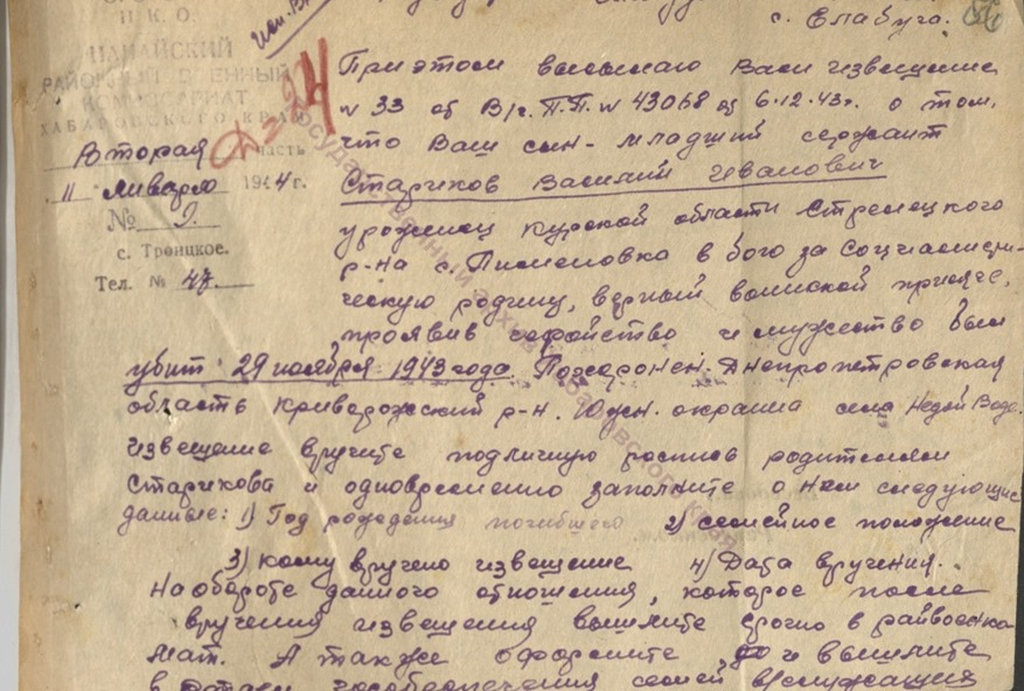 Н. К. О.
НАНАЙСКИЙ
РАЙОННЫЙ ВОЕННЫЙ
КОМИССАРИАТ
ХАБАРОВСКОГО КРАЯ
Вторая часть
"11" января 1944 г.
№ 9.
с. Троицкое.
Тел. № 47.
с. Елабуга.
При этом высылаю Вам извещение
N 33 от В/ч. П.П. N 43068 от 6.12.43г. о том,
что Ваш сын - младший сержант
Стариков Василий Иванович
урожнец Курской области Стрелецкого
р-на с. Пименовка в бою за Социалисти-
ческую родину, верный воинской присяге,
проявив геройство и мужество был
убит 29 ноября 1943 года. Похоронен. Днепропетровская
область Криворожский р-н. Южн. окраина села Недай Вода.
Извещение вручите под личную роспись родителям
Старикова и одновременно заполните о нем следующие
данные: 1) Год рождения погибшего 2) семейное положение
3) кому вручено извещение 4) Дата вручения.
На обороте данного отношения, которое после
вручения извещения вышлите срочно в райвоенко
мат. А также оформите и вышлите
в отдел гособеспечения семей в/служащих
Государственный архив Хабаровского края